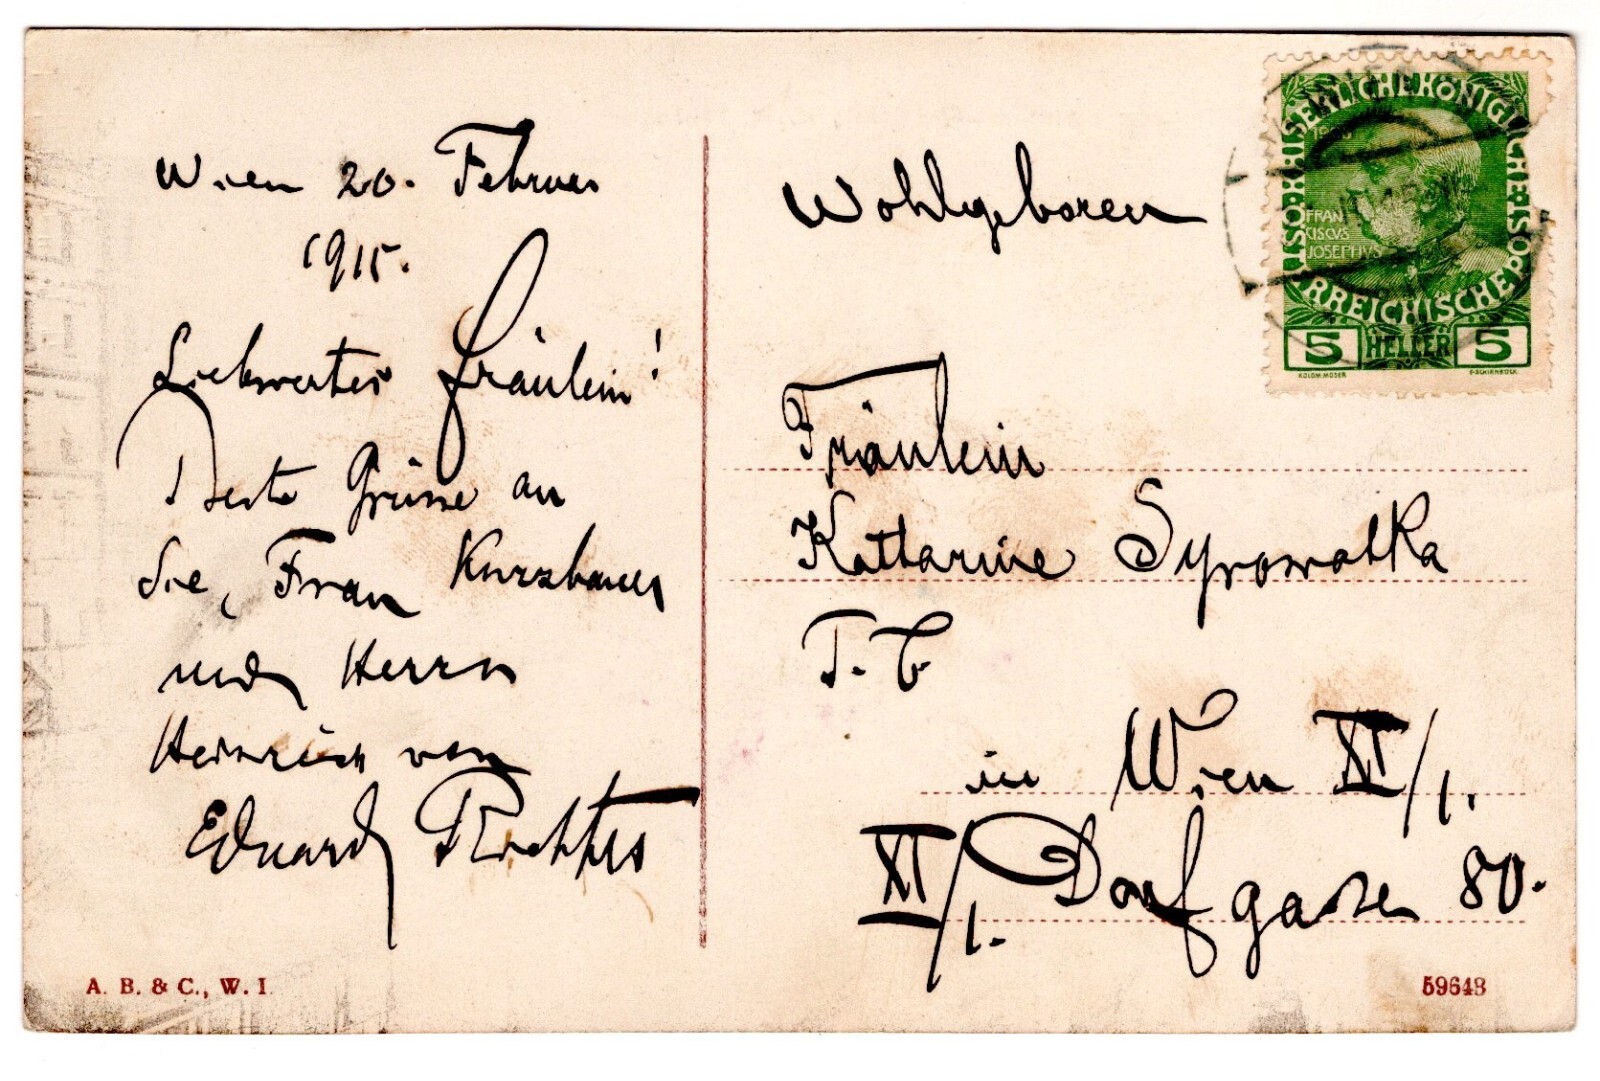 Wien 20. Februar
1915.
Liebwertes Fräulein!
Beste Grüsse an
Sie, Frau Kurzbauer
und Herrn
Heinrich von
Eduard Richter
Wohlgeboren
Fräulein
Kattarine Syrowatka
T. C
in Wien XI/1.
XI/1. Dorfgasse 80.
KAISERLICHE KÖNIGLICHE ÖSTERREICHISCHE POST
1908
FRAN
CISCVS
JOSEPHVS
5 HELLER 5
KOLOM. MOSER
F. SCHIRNBÖCK
A. B. & C., W. I.
59643